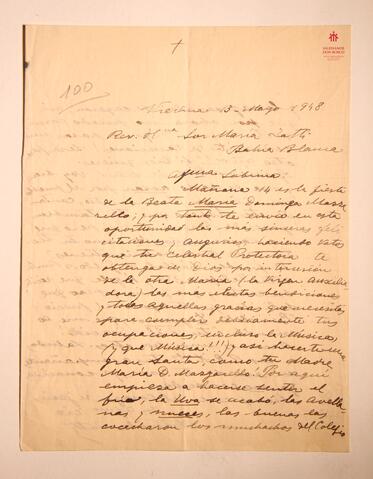 SALESIANOS
DON BOSCO
100
Viedma 3 - Mayo 1948
Rev. H.na Sor María Zatti
Bahía Blanca
Sobrina
Mañana 14 es la fiesta
de la Beata María Dominga Mazza
rello; y por tanto te envío en esta
oportunidad las mas sinceras feli
citaciones y augurios, haciendo votos
que tu Celestial Protectora te
obtenga de Dios por
de la otra María (la Virgen Auxilia
dora) las mas electas bendiciones
y todas aquellas gracias que necesitas
para cumplir santamente tus
ocupaciones, incluso la Música,
y que Música!!!) y así hacerte una
gran Santa, como tu Madre
María D. Mazzarello. Por aquí
empieza a hacerse sentir el
frío, la Uva se acabó, las Avella
nas y nueces, las buenas las
cosecharon los muchachos del Colegio